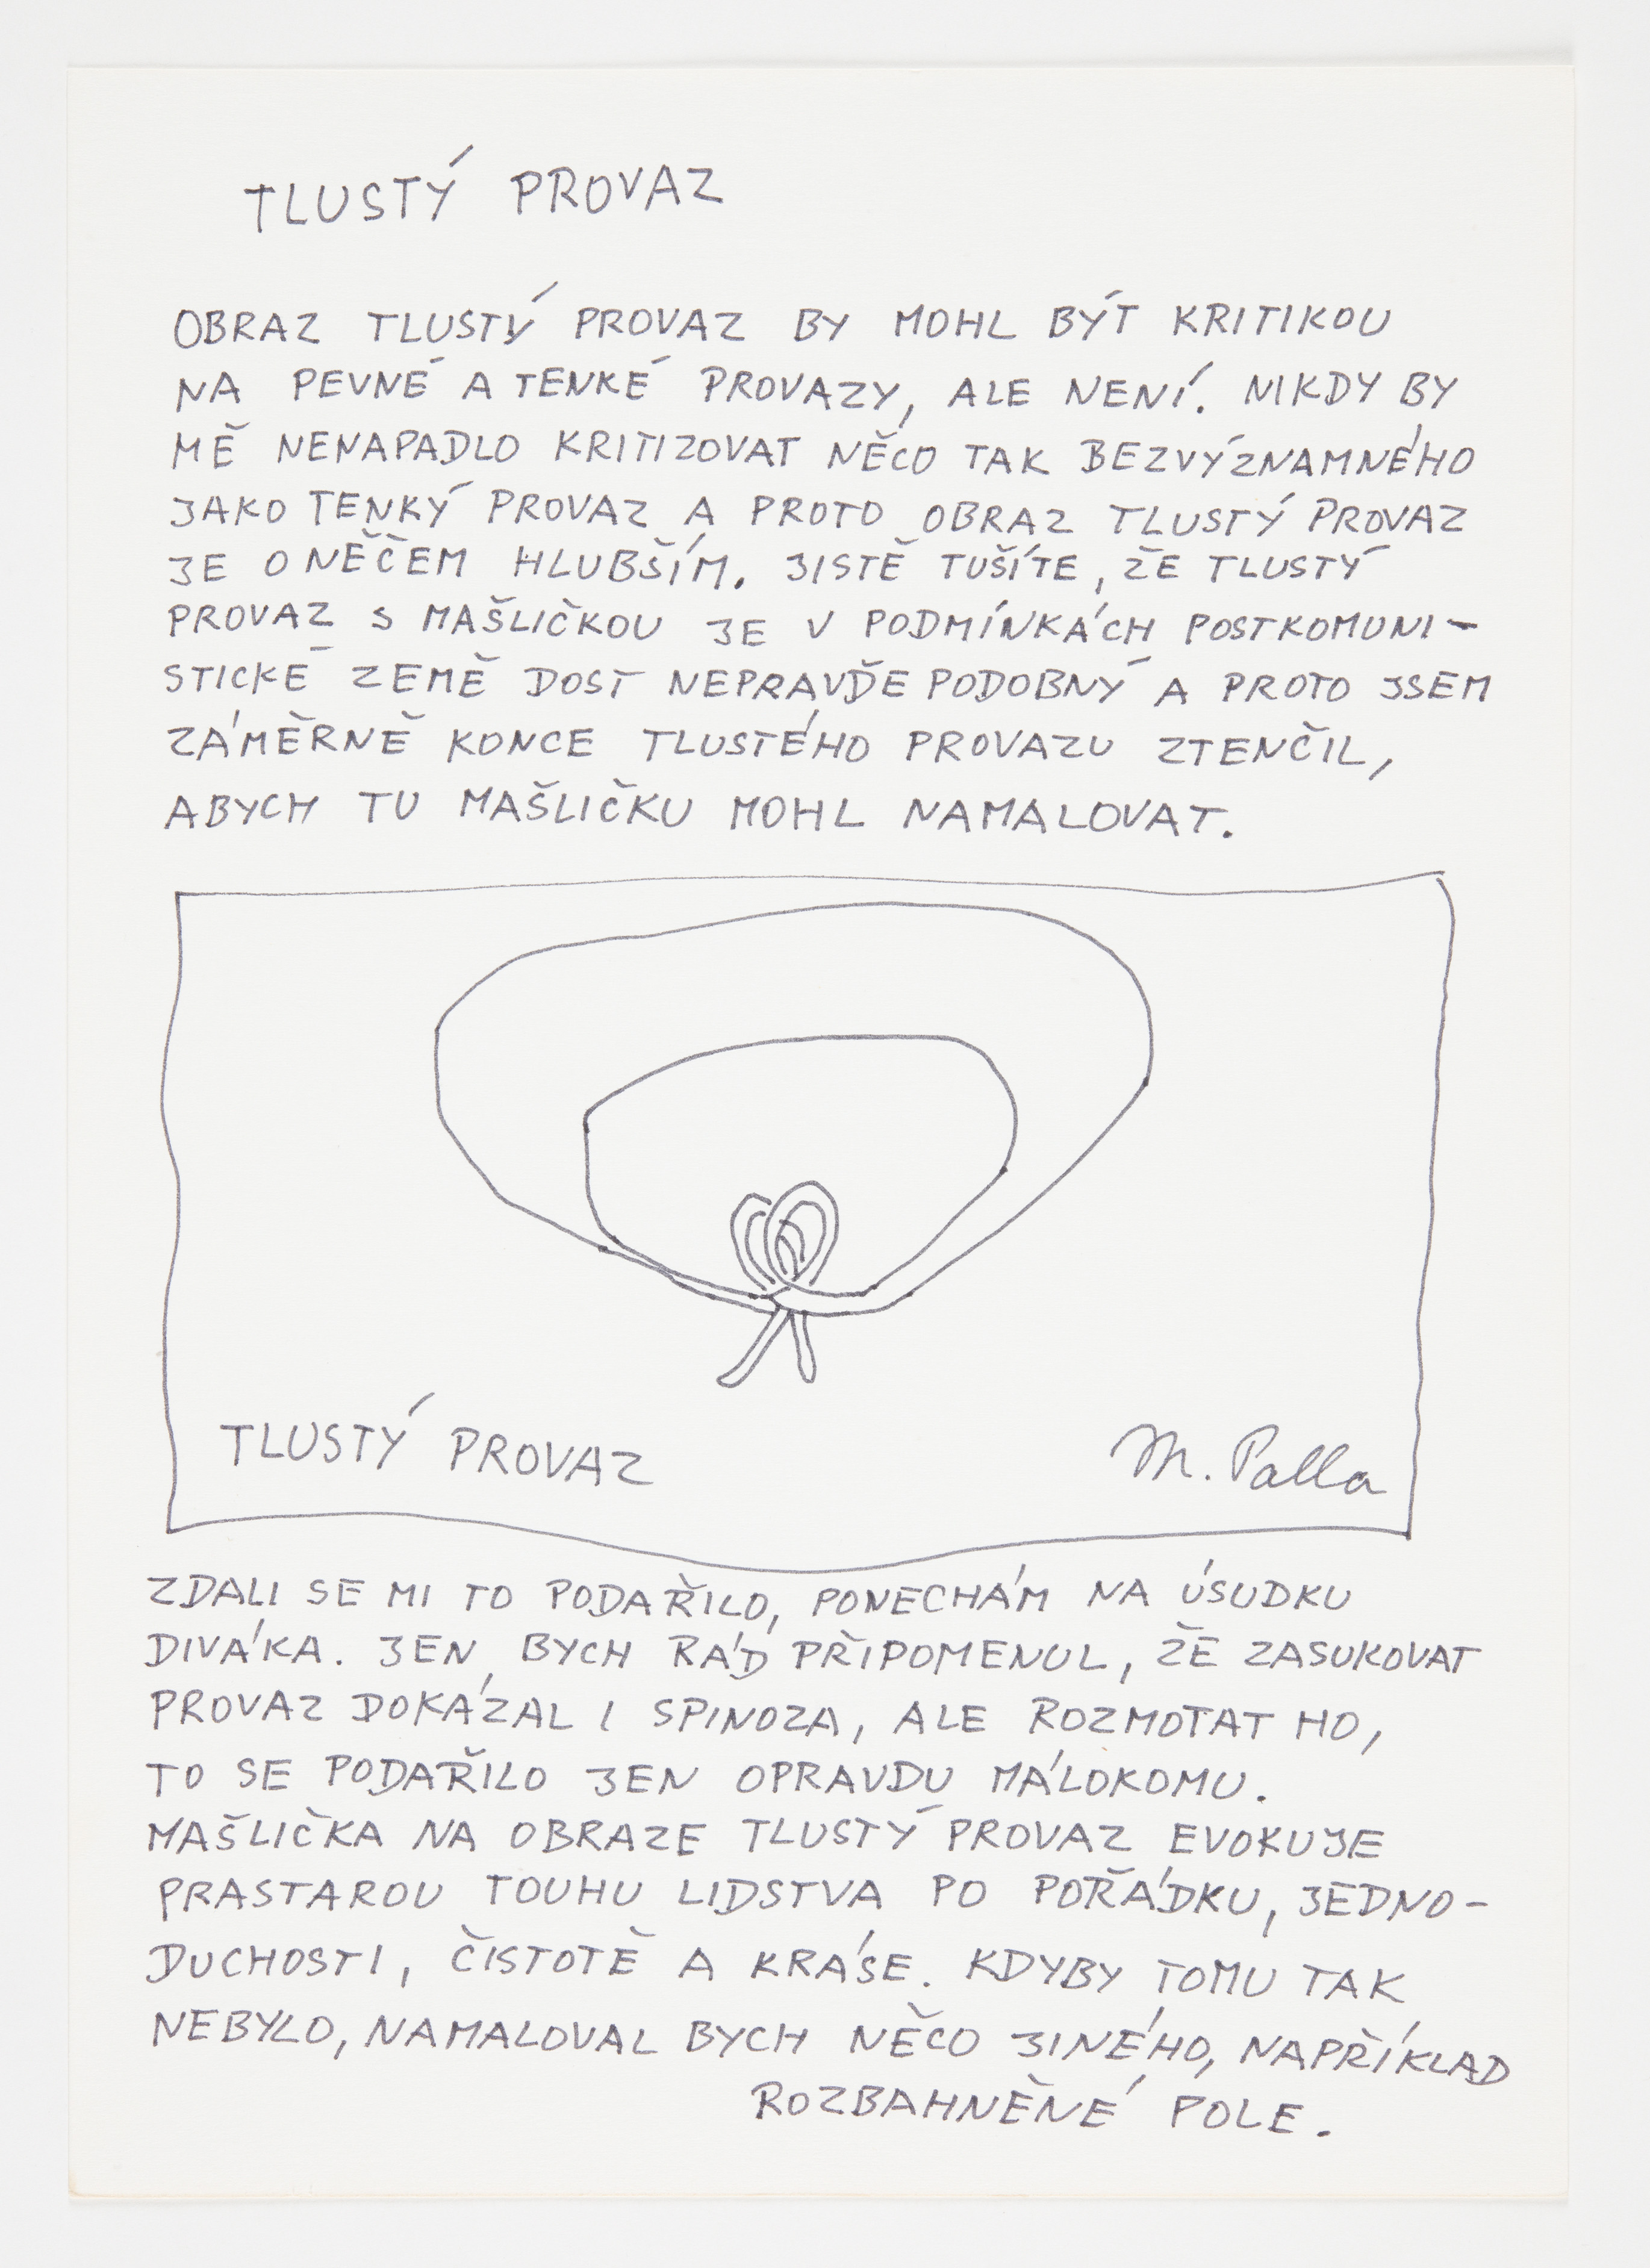 TLUSTÝ PROVAZ
OBRAZ TLUSTÝ PROVAZ BY MOHL BÝT KRITIKOU
NA PEVNÉ A TENKÉ PROVAZY, ALE NENÍ. NIKDY BY
MĚ NENAPADLO KRITIZOVAT NĚCO TAK BEZVÝZNAMNÉHO
JAKO TENKÝ PROVAZ A PROTO OBRAZ TLUSTÝ PROVAZ
JE O NĚČEM HLUBŠÍM. JISTĚ TUŠÍTE, ŽE TLUSTÝ
PROVAZ S MAŠLIČKOU JE V PODMÍNKÁCH POSTKOMUNI-
STICKÉ ZEMĚ DOST NEPRAVDĚPODOBNÝ A PROTO JSEM
ZÁMĚRNĚ KONCE TLUSTÉHO PROVAZU ZTENČIL,
ABYCH TU MAŠLIČKU MOHL NAMALOVAT.
TLUSTÝ PROVAZ
M. Palla
ZDALI SE MI TO PODAŘILO, PONECHÁM NA ÚSUDKU
DIVÁKA. JEN BYCH RÁD PŘIPOMENUL, ŽE ZASUKOVAT
PROVAZ DOKÁZAL I SPINOZA, ALE ROZMOTAT HO,
TO SE PODAŘILO JEN OPRAVDU MÁLOKOMU.
MAŠLIČKA NA OBRAZE TLUSTÝ PROVAZ EVOKUJE
PRASTAROU TOUHU LIDSTVA PO POŘÁDKU, JEDNO-
DUCHOSTI, ČISTOTĚ A KRÁSE. KDYBY TOMU TAK
NEBYLO, NAMALOVAL BYCH NĚCO JINÉHO, NAPŘÍKLAD
ROZBAHNĚNÉ POLE.